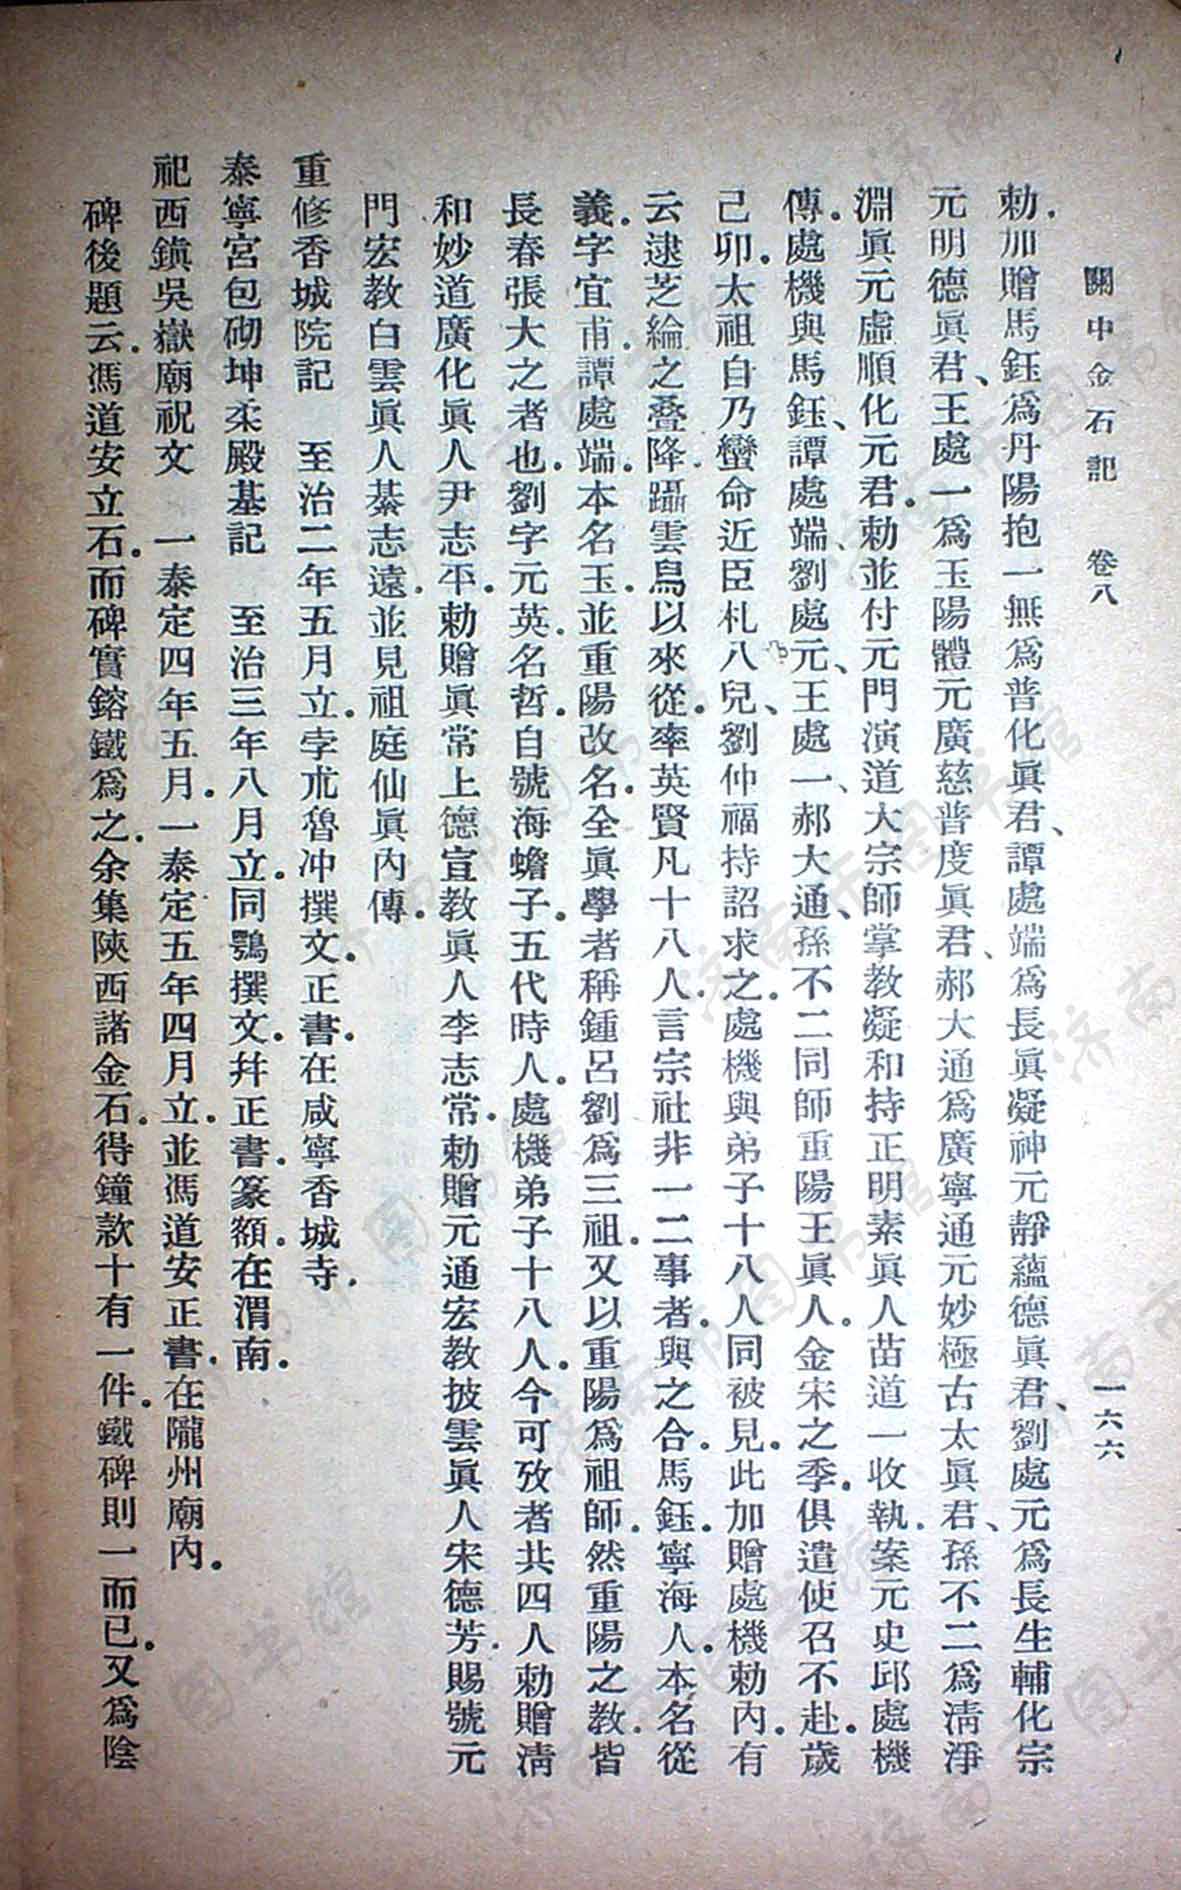 關中金石記　卷八　一六六
勅。加贈馬鈺爲丹陽抱一無爲普化眞君、譚處端爲長眞凝神元靜蘊德眞君、劉處元爲長生輔化宗
元明德眞君、王處一爲玉陽體元廣慈普度眞君、郝大通爲廣寧通元妙極古太眞君、孫不二爲淸淨
淵眞元虛順化元君。勅並付元門演道大宗師掌教凝和持正明素眞人苗道一收執。案元史邱處機
傳。處機與馬鈺、譚處端、劉處元、王處一、郝大通、孫不二同師重陽王眞人。金宋之季。俱遣使召不赴。歲
己卯。太祖自乃蠻命近臣札八兒、劉仲福持詔求之。處機與弟子十八人同被見。此加贈處機勅內。有
云逮芝綸之叠降。躡雲鳥以來從。率英賢凡十八人。言宗社非一二事者。與之合。馬鈺。寧海人。本名從
義。字宜甫。譚處端。本名玉。並重陽改名。全眞學者稱鍾呂劉爲三祖。又以重陽爲祖師。然重陽之教。皆
長春張大之者也。劉字元英。名哲。自號海蟾子。五代時人。處機弟子十八人。今可攷者共四人勅贈淸
和妙道廣化眞人尹志平。勅贈眞常上德宣教眞人李志常。勅贈元通宏教披雲眞人宋德芳。賜號元
門宏教白雲眞人綦志遠。並見祖庭仙眞內傳。
重修香城院記　至治二年五月立。孛朮魯冲撰文。正書。在咸寧香城寺。
泰寧宮包砌坤柔殿基記　至治三年八月立。同鷃撰文。幷正書。篆額。在渭南。
祀西鎭吳嶽廟祝文　一泰定四年五月。一泰定五年四月立。並馮道安正書。在隴州廟內。
碑後題云。馮道安立石。而碑實鎔鐵爲之。余集陝西諸金石。得鐘款十有一件。鐵碑則一而已。又爲陰